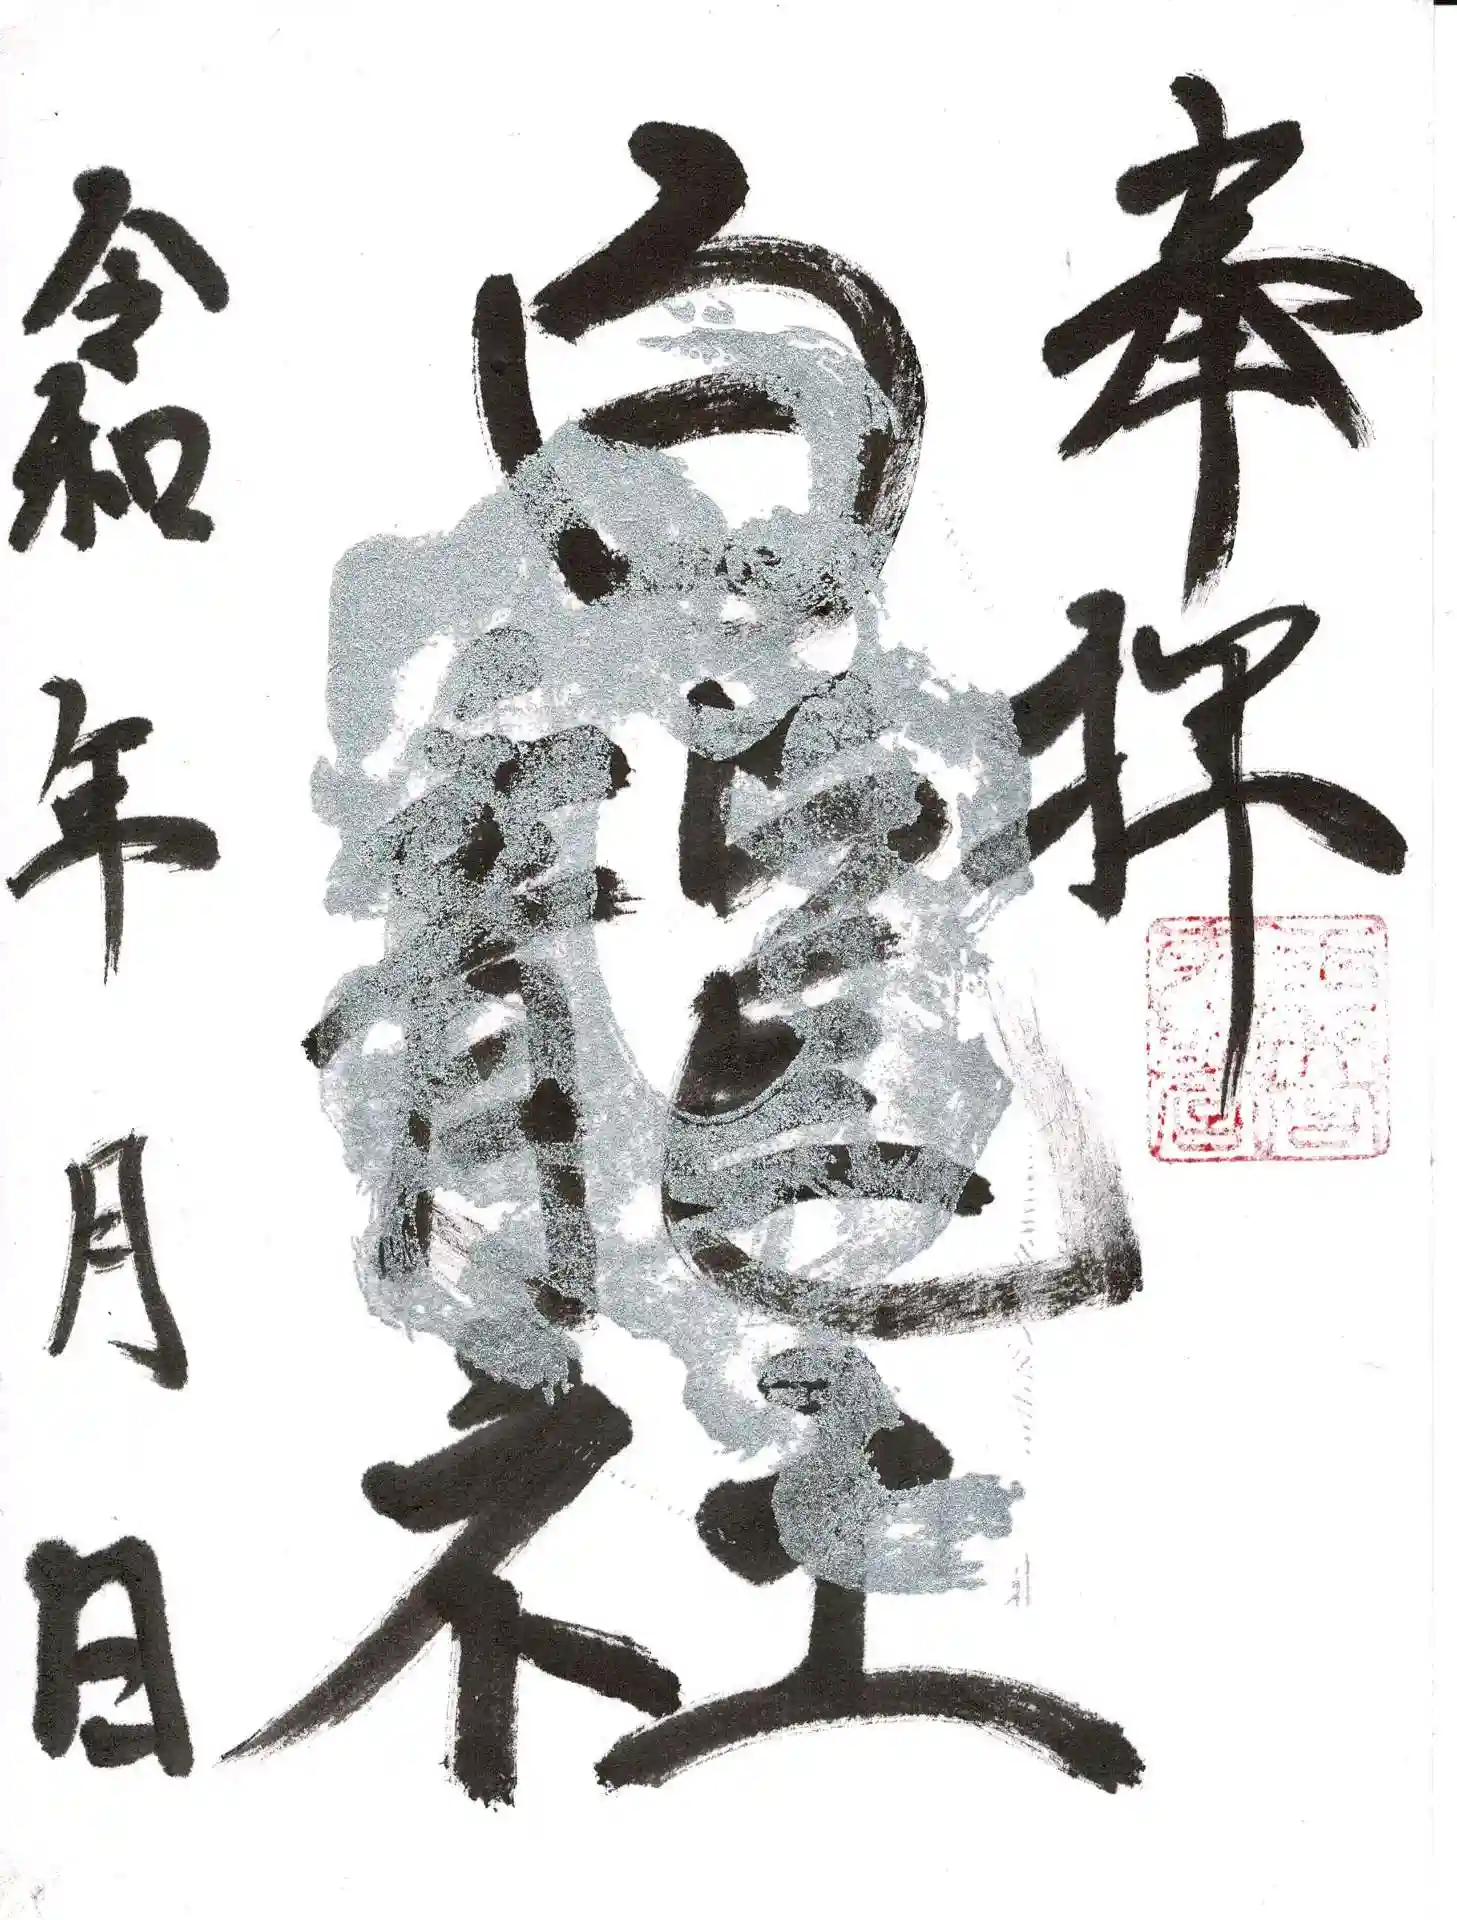 奉拝
白龍社
令和 年 月 日